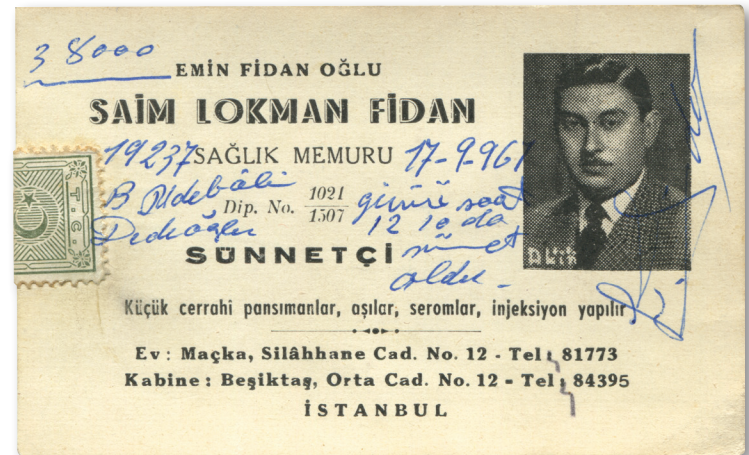 38000
EMİN FİDAN OĞLU
SAİM LOKMAN FİDAN
19237 SAĞLIK MEMURU 17-9-967
Dip. No. 1021
1507
günü saat
12 10 da
SÜNNETÇİ
sünnet
oldu -
T.C.
Küçük cerrahi pansımanlar, aşılar, seromlar, injeksiyon yapılır
Ev : Maçka, Silâhhane Cad. No. 12 - Tel : 81773
Kabine : Beşiktaş, Orta Cad. No. 12 - Tel : 84395
İSTANBUL